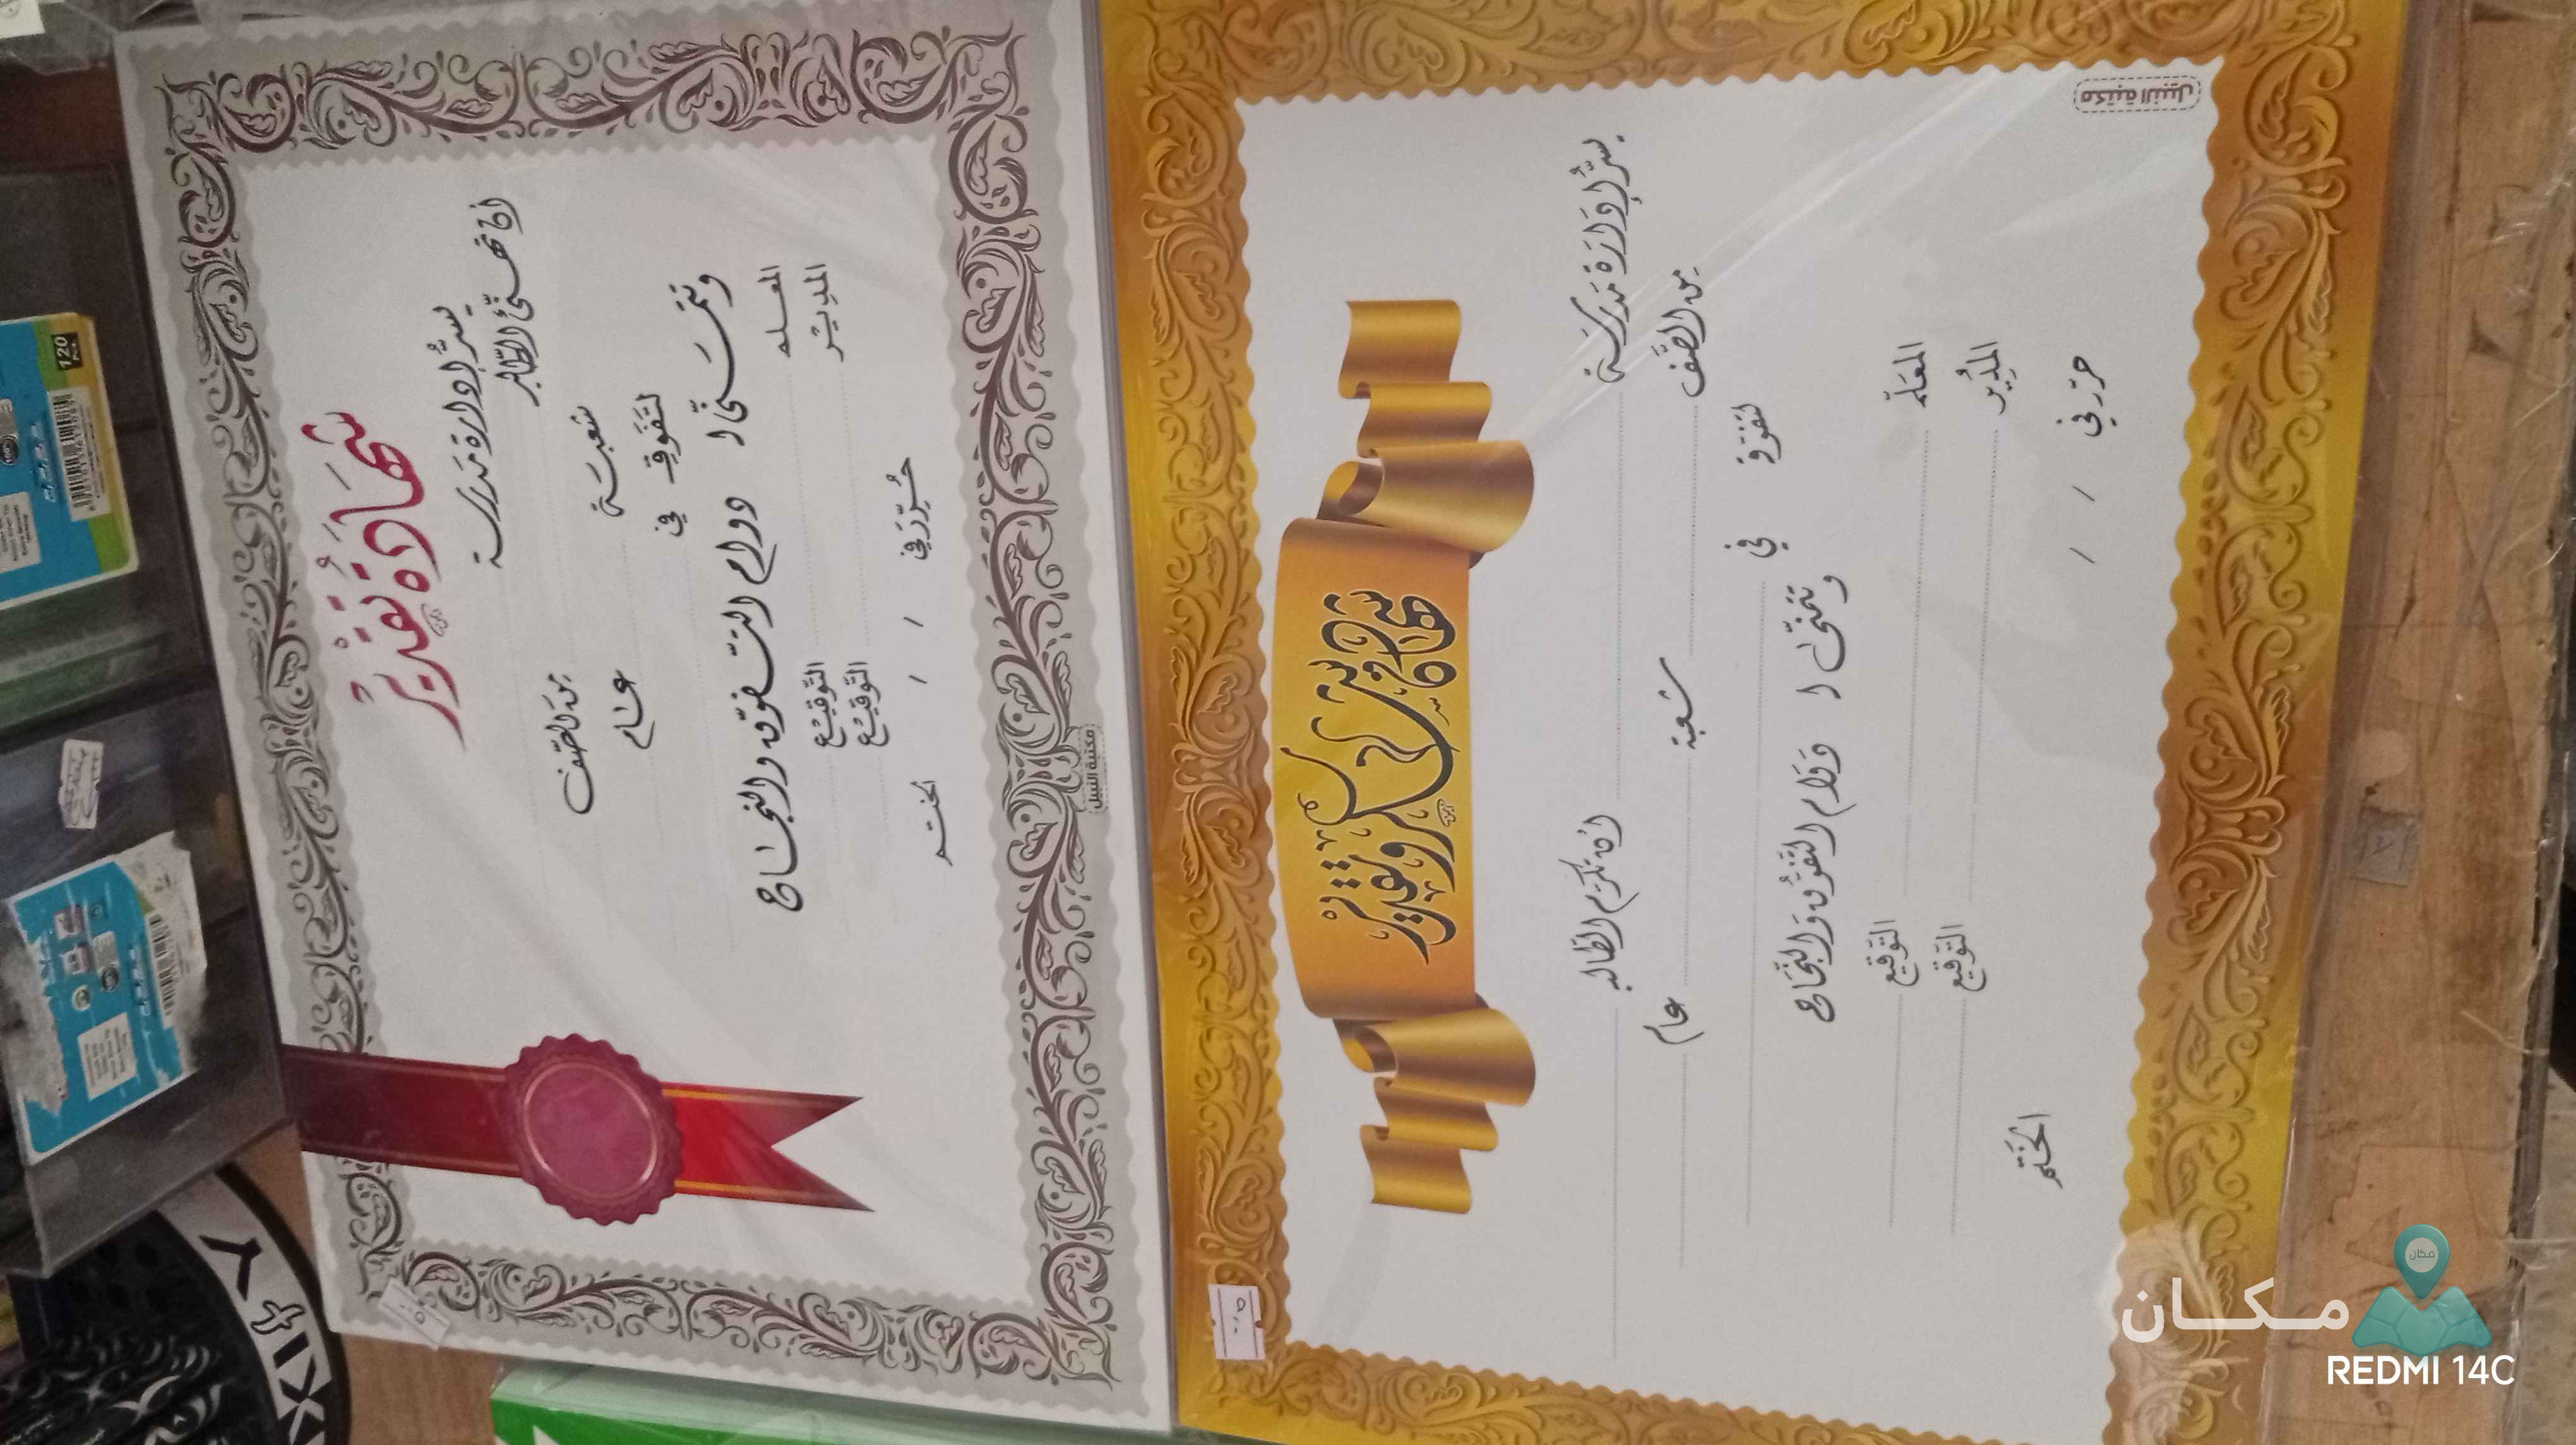 شَهَادَةُ تَقْدِيرٍ
يسرُّ إدارة مَدرسة
أن تمنح الطالب
من الصف
شعبة
عام
لتفوقه في
وتتمنى له دوام التفوق والنجاح
المعلم
التوقيع
المدير
التوقيع
حُرِّرَ في / /
الختم
مكتبة النبيل
شهادة شكر وتقدير
يسرُّ إدارة مدرسة
أن تكرم الطالب
من الصف
شعبة
عام
لتفوقه في
وتتمنى له دوام التفوق والنجاح
المعلم
التوقيع
المدير
التوقيع
حرر في / /
الختم
مكتبة النبيل
120
مكان
REDMI 14C